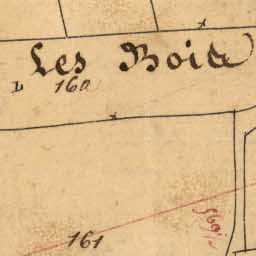 Les Bois
160
161